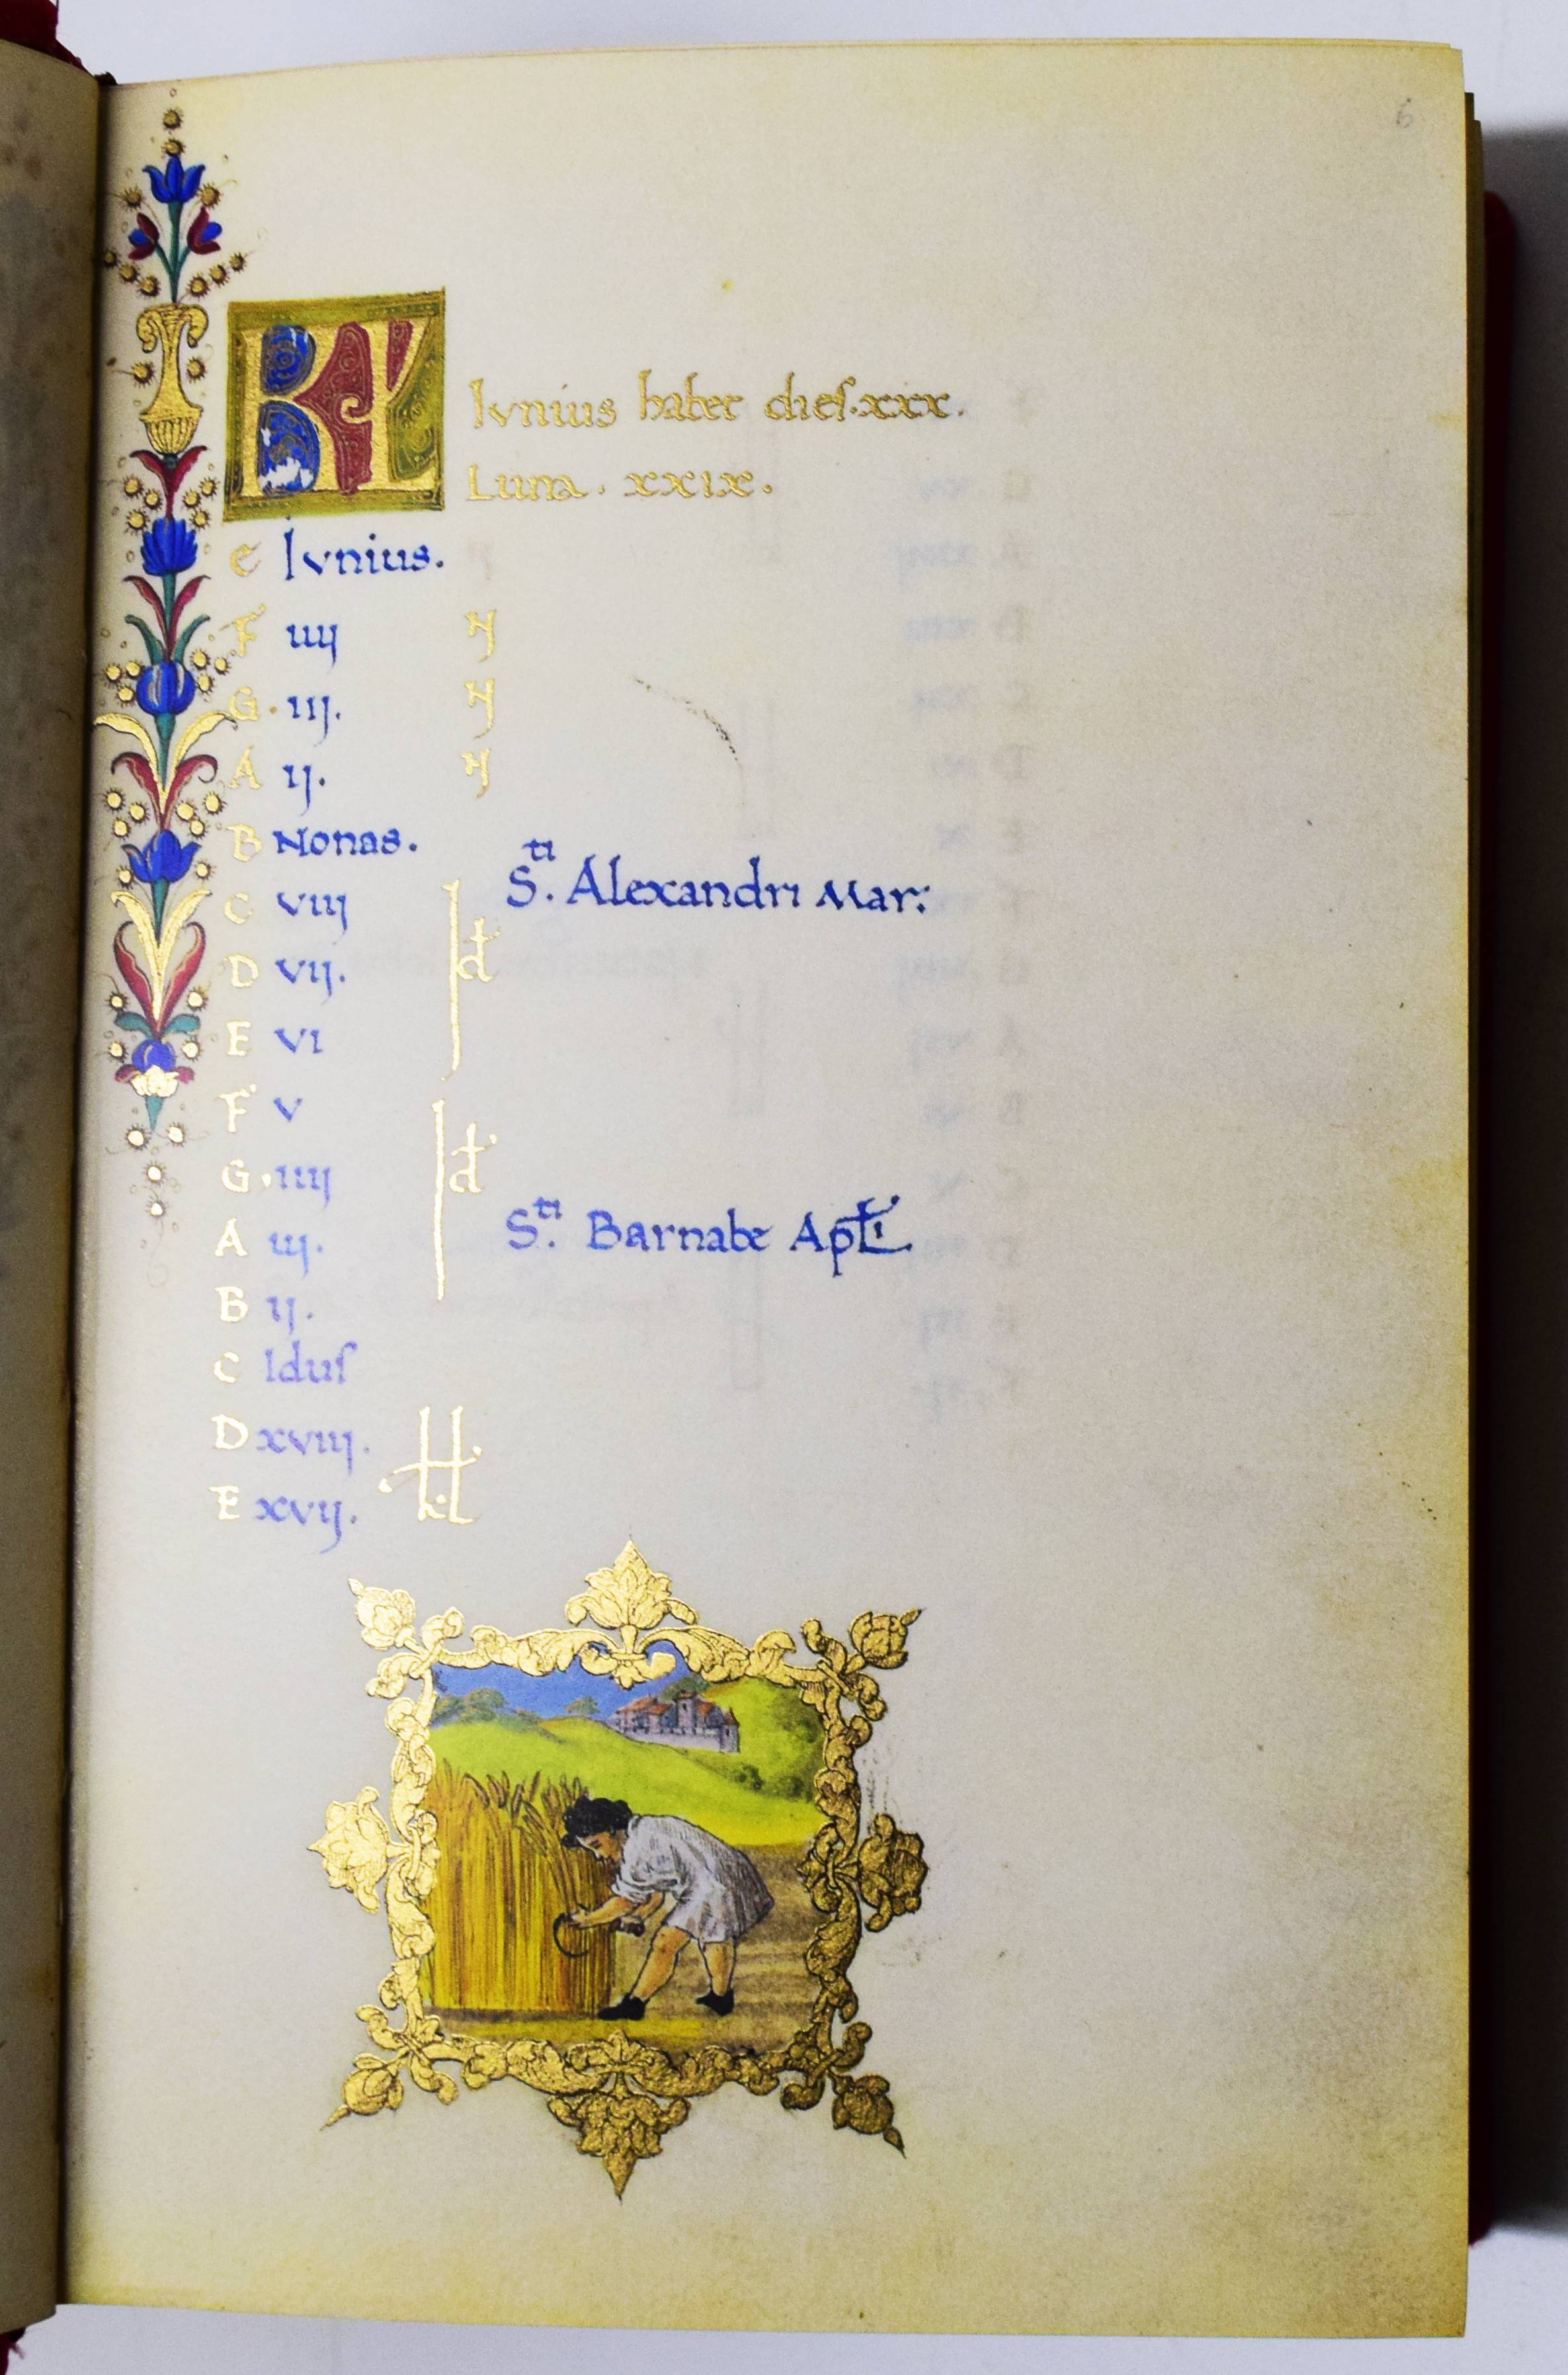 6
KL Iunius habet dies. xxx.
Luna. xxix.
e Iunius.
F iiij N
G. iij. N
A ij. N
B Nonas.
C viij Sti. Alexandri Mar:
D vij. Id
E vi
F v
G. iiij Id
A iij. Sti. Barnabe Apli.
B ij.
C Idus
D xviij.
E xvij. kl